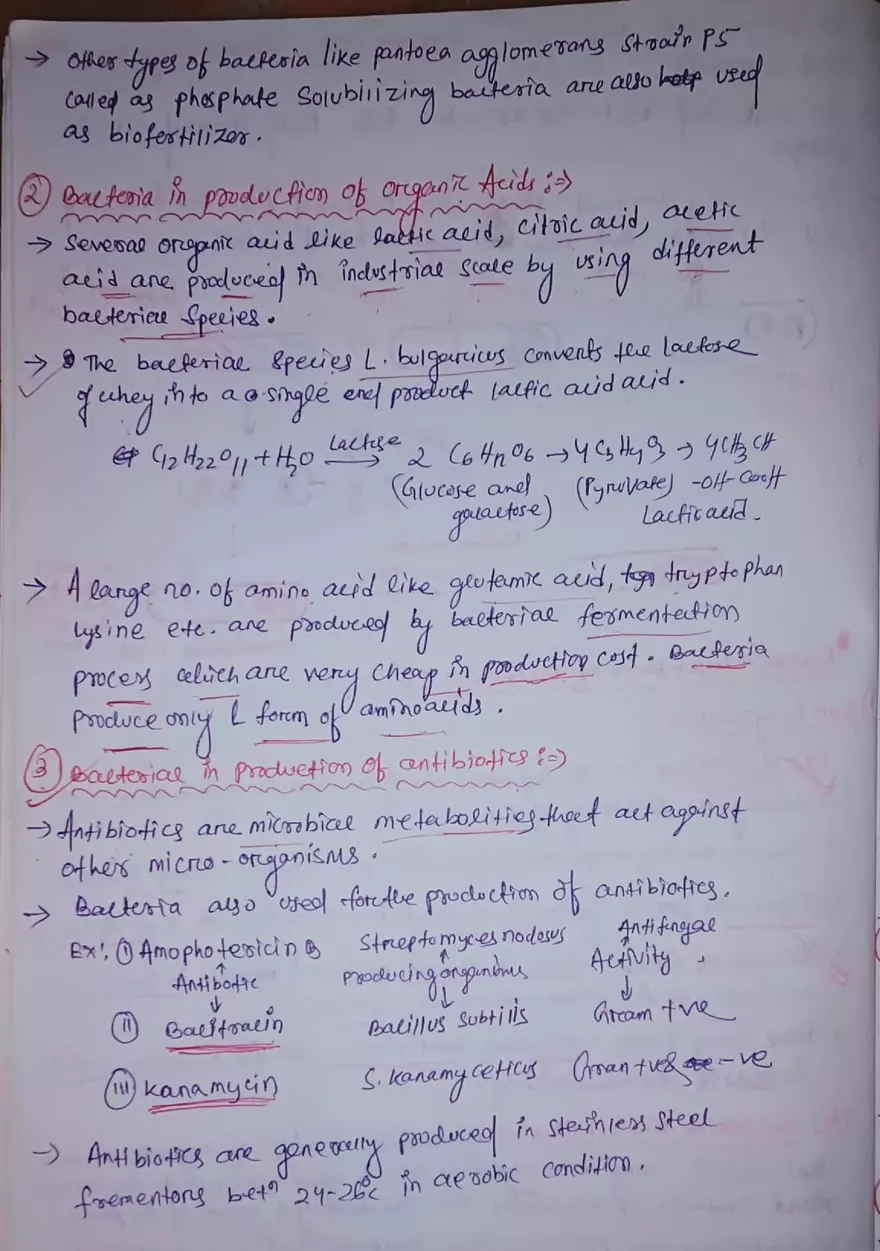 → Other types of bacteria like pantoea agglomerans strain P5
called as phosphate solubilizing bacteria are also used
as biofertilizer.
② Bacteria in production of organic Acids :⇒
→ Several organic acid like lactic acid, citric acid, acetic
acid are produced in industrial scale by using different
bacterial species.
→ The bacterial species L. bulgaricus converts the lactose
of whey into a single end product lactic acid acid.
C12H22O11 + H2O Lactase → 2 C6H12O6 → 4C3H4O3 → 4CH3CH
(Glucose and (Pyruvate) -OH-CooH
galactose) Lactic acid.
→ A large no. of amino acid like glutamic acid, tryptophan
lysine etc. are produced by bacterial fermentation
process which are very cheap in production cost. Bacteria
produce only L form of aminoacids.
③ Bacterial in production of antibiotics :⇒
→ Antibiotics are microbial metabolities that act against
other micro-organisms.
→ Bacteria also used for the production of antibiotics.
Ex: ① Amophotericin B Streptomyces nodosus Antifungal
↑ Antibotic ↓ ↑ producing organisms ↓ ↑ Activity ↓
② Bacitracin Bacillus subtilis Gram +ve
③ Kanamycin S. Kanamyceticus Gram +ve & -ve
→ Antibiotics are generally produced in stainless steel
frementors betn 24-26°c in aerobic condition.